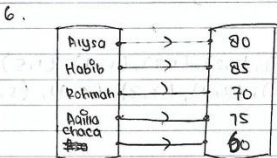 6.
Alysa → 80
Habib → 85
Rohmah → 70
Aqilla → 75
chaca → 60